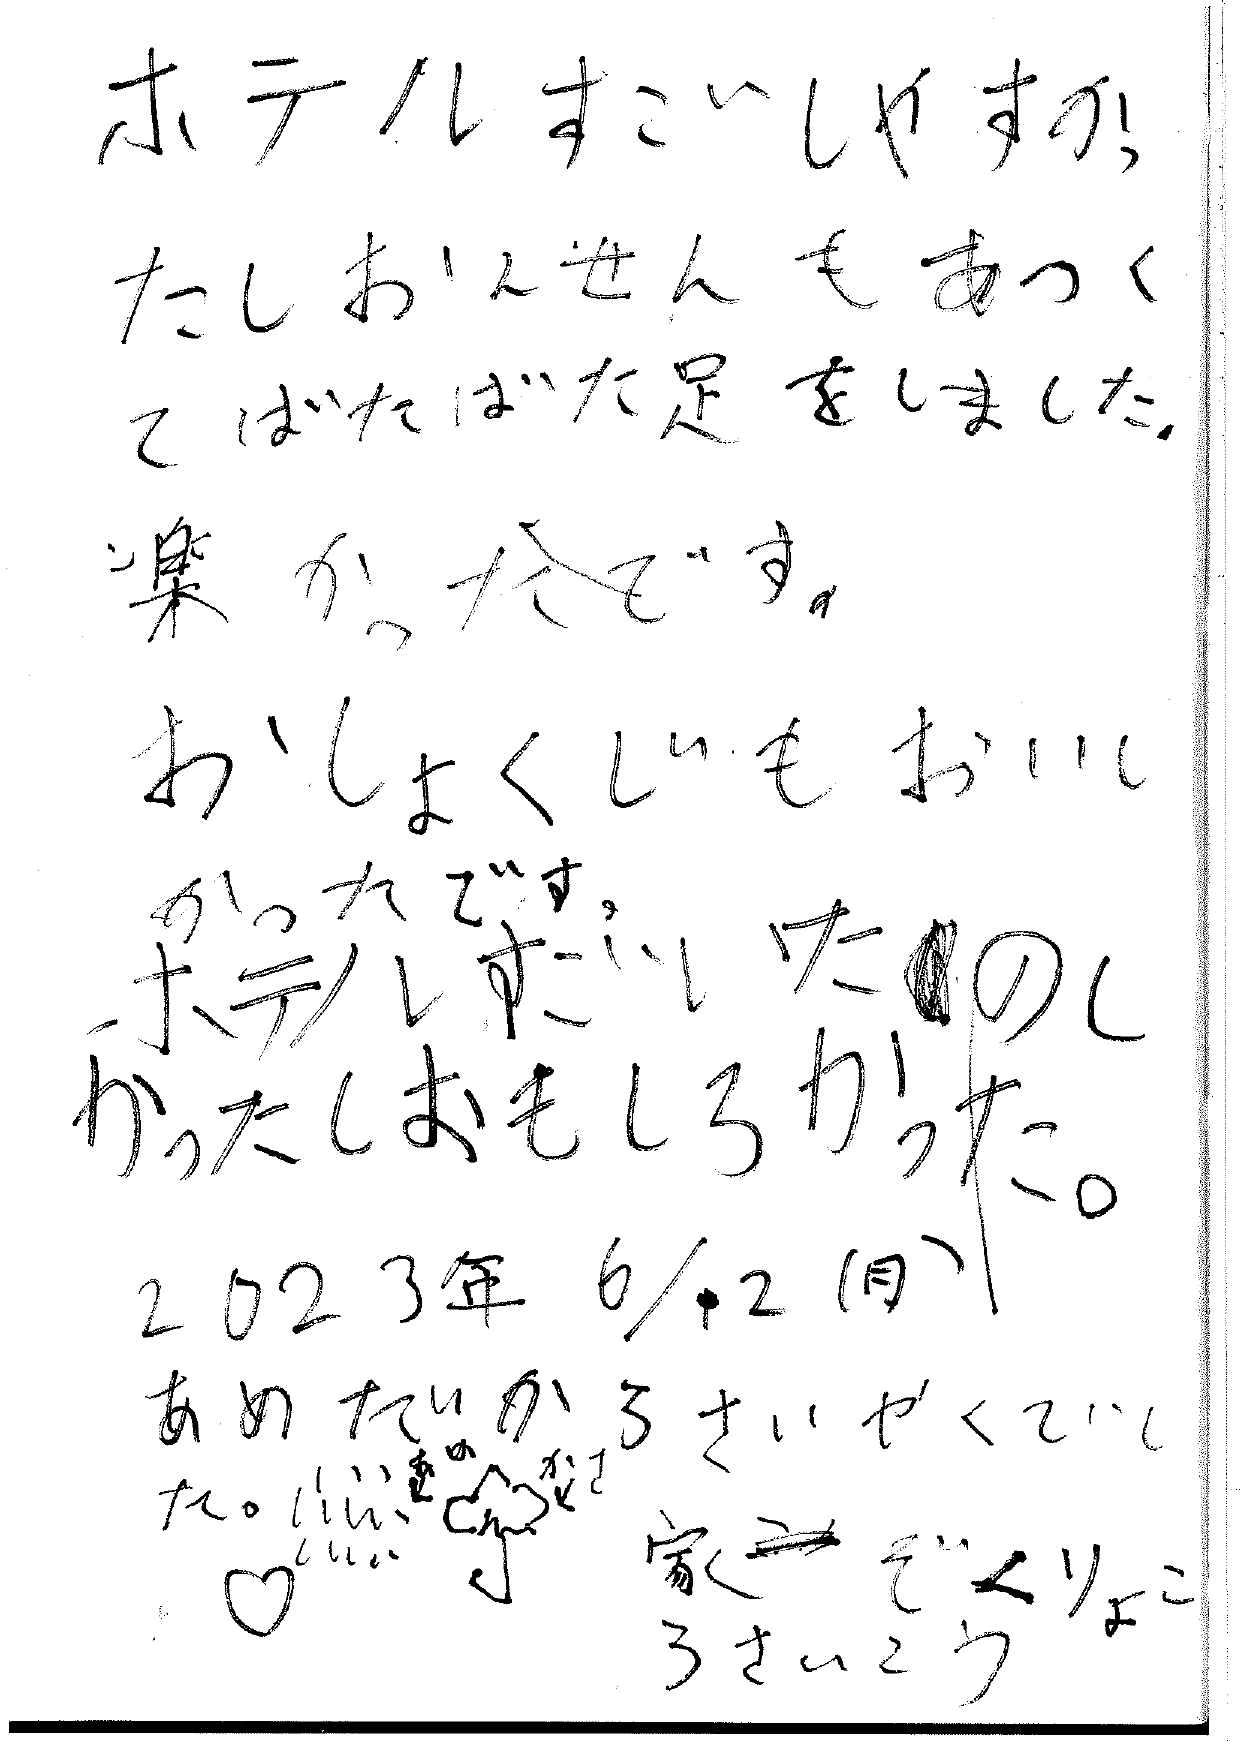 ホテルすごしやすかっ
たしおんせんもあつく
てばたばた足をしました。
楽かったです。
おしょくじもおいし
かったです。
ホテルすごいしたのし
かったしおもしろかった。
2023年 6/12(月)
あめだからさいやくでし
た。
あめ
かさ
家ぞくりょこ
うさいこう